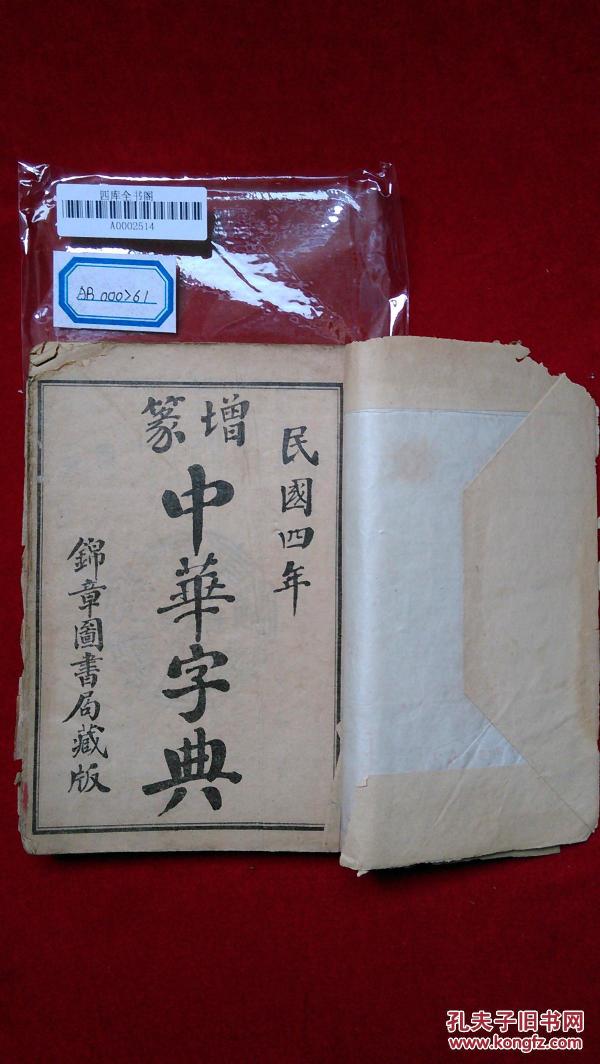 四库全书阁
A0002514
AB 000761
民國四年
增篆
中華字典
錦章圖書局藏版
孔夫子旧书网
www.kongfz.com